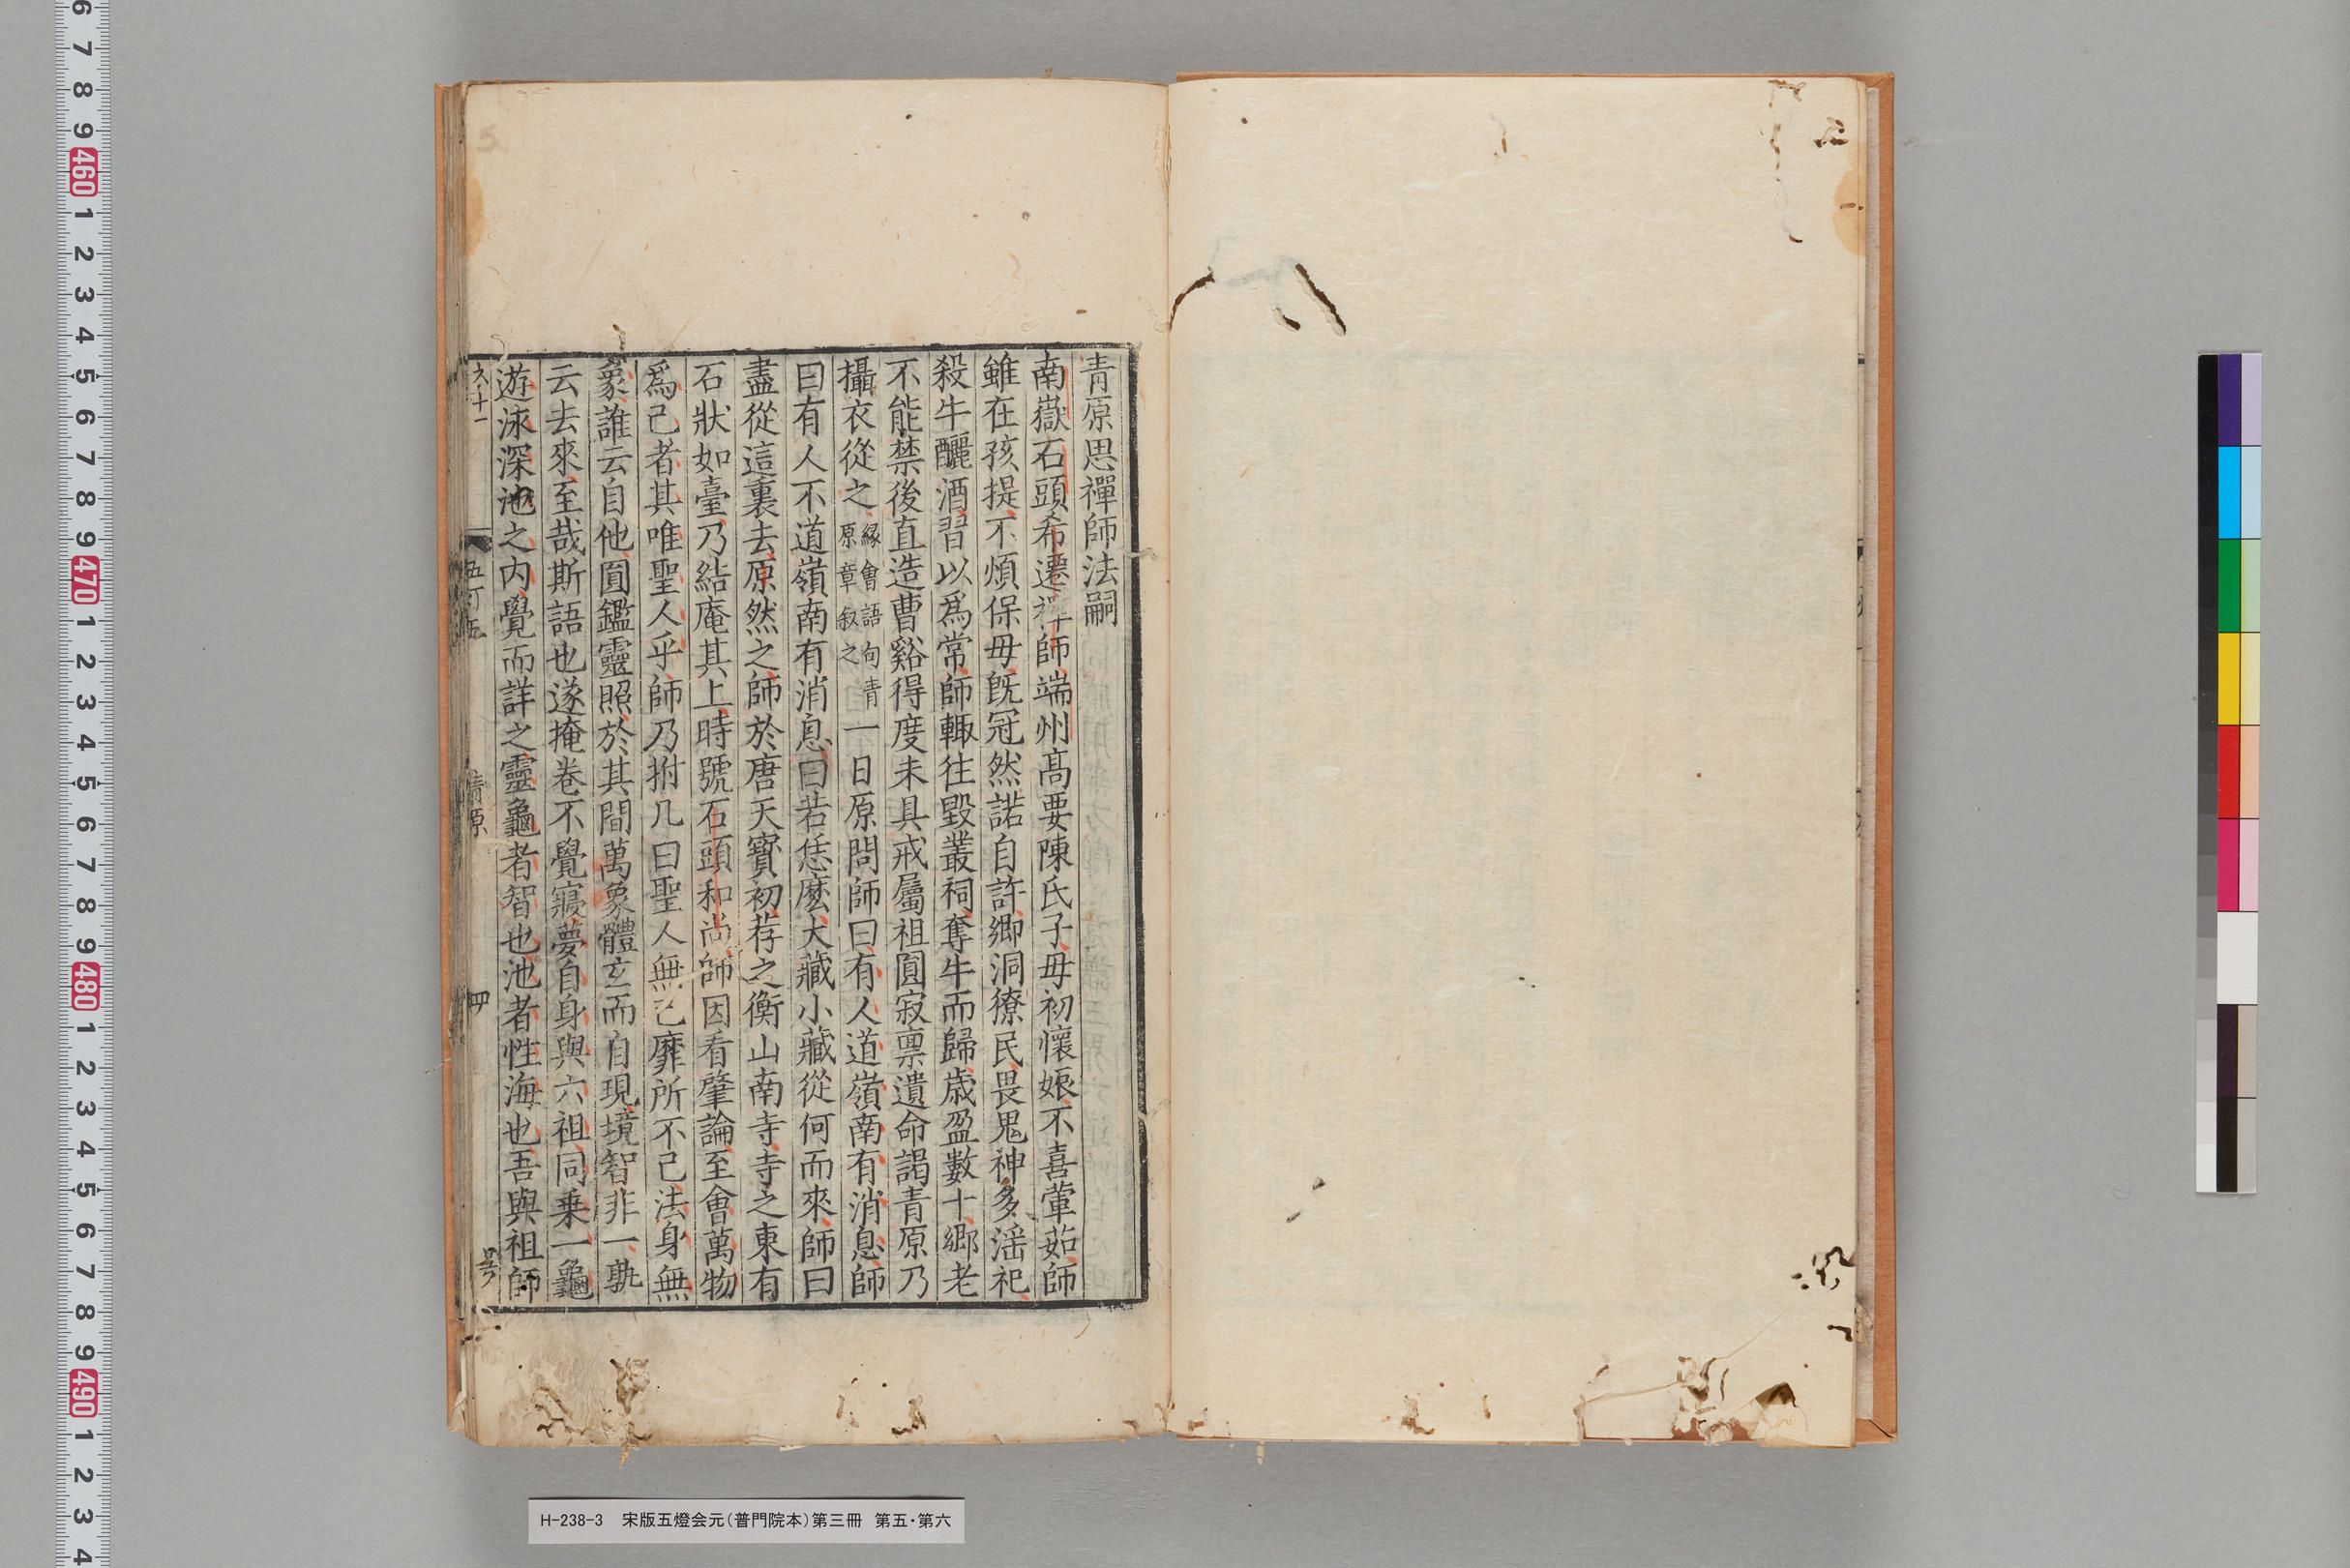 青原思禪師法嗣
南嶽石頭希遷禪師端州髙要陳氏子母初懷娠不喜葷茹師
雖在孩提不煩保母旣冠然諾自許鄉洞獠民畏鬼神多滛祀
殺牛釃酒習以爲常師輙往毀叢祠奪牛而歸歲盈數十鄉老
不能禁後直造曹谿得度未具戒屬祖圓寂稟遺命謁青原乃
攝衣從之緣會語句青原章敍之一日原問師曰有人道嶺南有消息師
曰有人不道嶺南有消息曰若恁麽大藏小藏從何而來師曰
盡從這裏去原然之師於唐天寶初荐之衡山南寺寺之東有
石狀如臺乃結庵其上時號石頭和尚師因看肇論至會萬物
爲己者其唯聖人乎師乃拊几曰聖人無己靡所不己法身無
象誰云自他圓鑑靈照於其間萬象體玄而自現境智非一孰
云去來至哉斯語也遂掩卷不覺寢夢自身與六祖同乗一龜
遊泳深池之内覺而詳之靈龜者智也池者性海也吾與祖師
六十一
五丁五
青原
四
H-238-3 宋版五燈会元(普門院本)第三冊 第五・第六
6 7 8 9 460 1 2 3 4 5 6 7 8 9 470 1 2 3 4 5 6 7 8 9 480 1 2 3 4 5 6 7 8 9 490 1 2 3 4